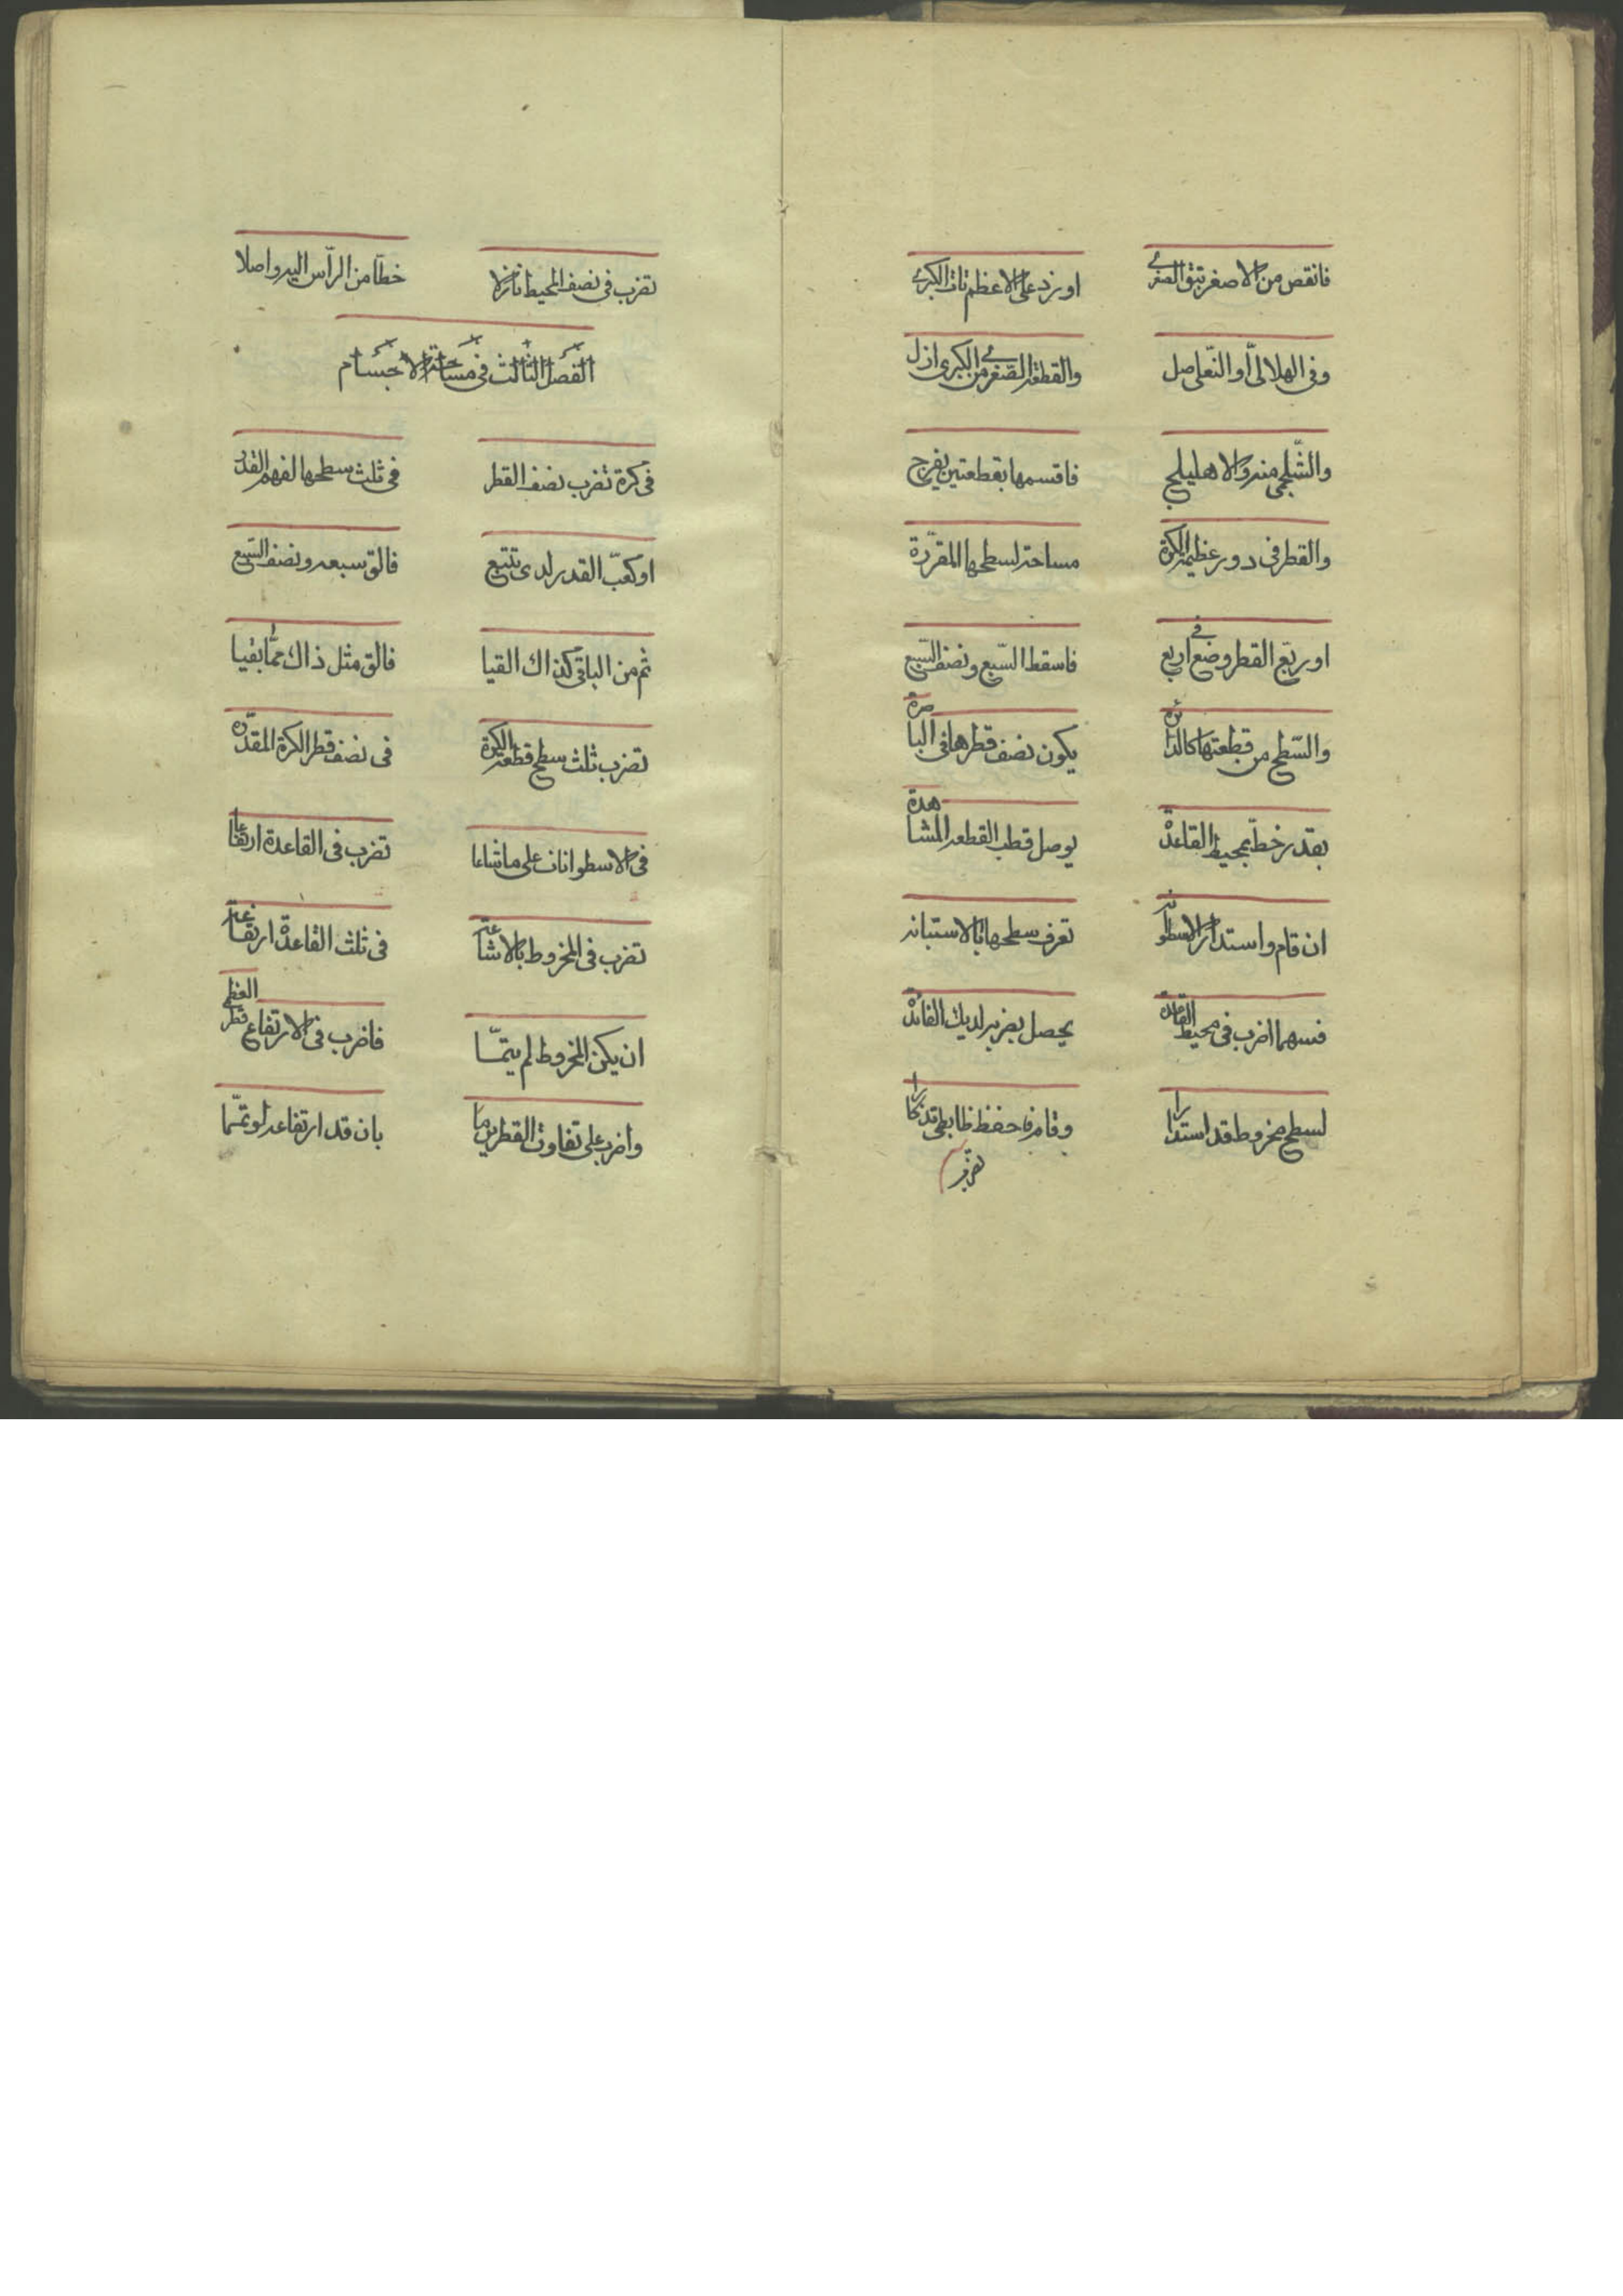 فانقص من الاصغر تبق الصغرى
او زد على الاعظم تات الكبرى
وفى الهلالى أو النعلى صل
والقطعة الصغرى من الكبرى ازل
والشلجمى منه والاهليلجى
فاقسمها بقطعتين يفرج
والقطر فى دور عظيمة الكرة
مساحة لسطحها المقررة
او ربع القطر وضع فى اربع
فاسقط السبع ونصف السبع
والسطح من قطعتها كالدائرة
يكون نصف قطرها فى الباصرة
بقدر خط بمحيط القاعدة
يوصل قطب القطعه المشاهدة
ان قام واستدار الاسطوانه
تعرف سطحها بالاستبانه
فسهما اضرب فى محيط القاعدة
يحصل بضربه لديك الفائدة
لسطح مخروط قد استدارا
وقام فاحفظ
تضرب
تضرب فى نصف المحيط نازلا
خطا من الرأس اليه واصلا
الفصل الثالث فى مساحة الاجسام
فى كرة تضرب نصف القطر
فى ثلث سطحها لفهم القدر
او كعب القدر لدى تتبع
فالق سبعه ونصف السبع
ثم من الباقى كذاك القيا
فالق مثل ذاك مما بقيا
تضرب ثلث سطح قطعة الكرة
فى نصف قطر الكرة المقدره
فى الاسطوانات على ما شاعا
تضرب فى القاعدة ارتفاعا
تضرب فى المخروط بالاشاعة
فى ثلث القاعدة ارتفاعه
ان يكن المخروط لم يتما
فاضرب فى الارتفاع قطر العظمى
واضرب على تفاوت القطرين ما
بان قد ارتفاعه لو تمما